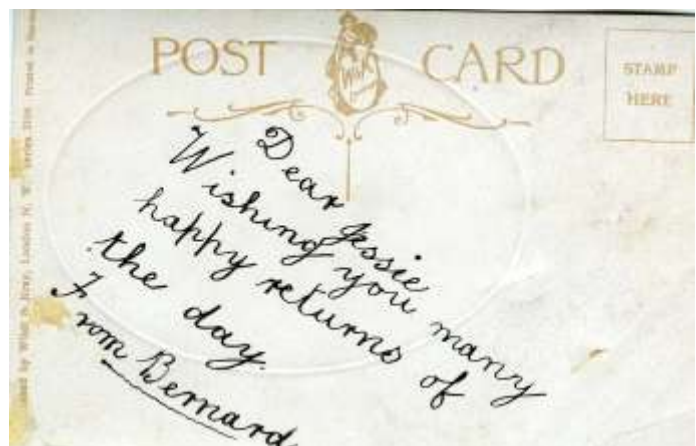 POST CARD
STAMP
HERE
Dear Jessie
Wishing you many
happy returns of
the day.
From Bernard
London N. W. Series
Printed in